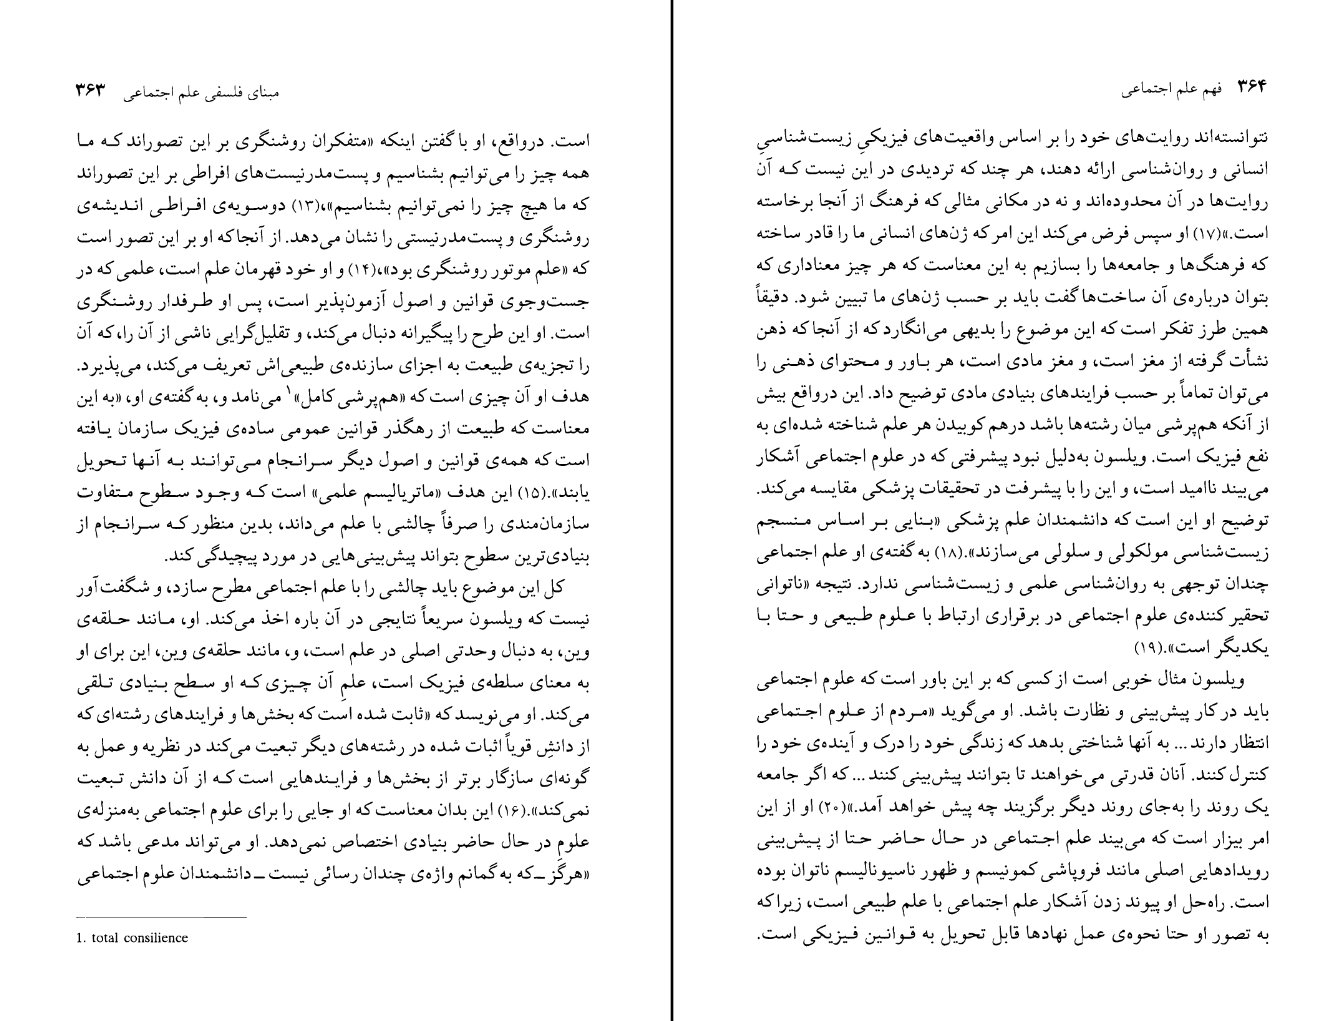 مبنای فلسفی علم اجتماعی ۳۶۳
است. درواقع، او با گفتن اینکه «متفکران روشنگری بر این تصوراند که ما
همه چیز را می‌توانیم بشناسیم و پست‌مدرنیست‌های افراطی بر این تصوراند
که ما هیچ چیز را نمی‌توانیم بشناسیم»،(۱۳) دوسویه‌ی افراطی اندیشه‌ی
روشنگری و پست‌مدرنیستی را نشان می‌دهد. از آنجا که او بر این تصور است
که «علم موتور روشنگری بود»،(۱۴) و او خود قهرمان علم است، علمی که در
جست‌وجوی قوانین و اصول آزمون‌پذیر است، پس او طرفدار روشنگری
است. او این طرح را پیگیرانه دنبال می‌کند، و تقلیل‌گرایی ناشی از آن را، که آن
را تجزیه‌ی طبیعت به اجزای سازنده‌ی طبیعی‌اش تعریف می‌کند، می‌پذیرد.
هدف او آن چیزی است که «هم‌پرشی کامل»۱ می‌نامد و، به گفته‌ی او، «به این
معناست که طبیعت از رهگذر قوانین عمومی ساده‌ی فیزیک سازمان یافته
است که همه‌ی قوانین و اصول دیگر سرانجام می‌توانند به آنها تحویل
یابند».(۱۵) این هدف «ماتریالیسم علمی» است که وجود سطوح متفاوت
سازمان‌مندی را صرفاً چالشی با علم می‌داند، بدین منظور که سرانجام از
بنیادی‌ترین سطوح بتواند پیش‌بینی‌هایی در مورد پیچیدگی کند.
کل این موضوع باید چالشی را با علم اجتماعی مطرح سازد، و شگفت‌آور
نیست که ویلسون سریعاً نتایجی در آن باره اخذ می‌کند. او، مانند حلقه‌ی
وین، به دنبال وحدتی اصلی در علم است، و، مانند حلقه‌ی وین، این برای او
به معنای سلطه‌ی فیزیک است، علمِ آن چیزی که او سطح بنیادی تلقی
می‌کند. او می‌نویسد که «ثابت شده است که بخش‌ها و فرایندهای رشته‌ای که
از دانشِ قویاً اثبات شده در رشته‌های دیگر تبعیت می‌کند در نظریه و عمل به
گونه‌ای سازگار برتر از بخش‌ها و فرایندهایی است که از آن دانش تبعیت
نمی‌کند».(۱۶) این بدان معناست که او جایی را برای علوم اجتماعی به‌منزله‌ی
علومِ در حال حاضر بنیادی اختصاص نمی‌دهد. او می‌تواند مدعی باشد که
«هرگز ــ که به گمانم واژه‌ی چندان رسائی نیست ــ دانشمندان علوم اجتماعی
1. total consilience
۳۶۴ فهم علم اجتماعی
نتوانسته‌اند روایت‌های خود را بر اساس واقعیت‌های فیزیکیِ زیست‌شناسیِ
انسانی و روان‌شناسی ارائه دهند، هر چند که تردیدی در این نیست که آن
روایت‌ها در آن محدوده‌اند و نه در مکانی مثالی که فرهنگ از آنجا برخاسته
است.»(۱۷) او سپس فرض می‌کند این امر که ژن‌های انسانی ما را قادر ساخته
که فرهنگ‌ها و جامعه‌ها را بسازیم به این معناست که هر چیز معناداری که
بتوان درباره‌ی آن ساخت‌ها گفت باید بر حسب ژن‌های ما تبیین شود. دقیقاً
همین طرز تفکر است که این موضوع را بدیهی می‌انگارد که از آنجا که ذهن
نشأت گرفته از مغز است، و مغز مادی است، هر باور و محتوای ذهنی را
می‌توان تماماً بر حسب فرایندهای بنیادی مادی توضیح داد. این درواقع بیش
از آنکه هم‌پرشی میان رشته‌ها باشد درهم کوبیدن هر علم شناخته شده‌ای به
نفع فیزیک است. ویلسون به‌دلیل نبود پیشرفتی که در علوم اجتماعی آشکار
می‌بیند ناامید است، و این را با پیشرفت در تحقیقات پزشکی مقایسه می‌کند.
توضیح او این است که دانشمندان علم پزشکی «بنایی بر اساس منسجم
زیست‌شناسی مولکولی و سلولی می‌سازند».(۱۸) به گفته‌ی او علم اجتماعی
چندان توجهی به روان‌شناسی علمی و زیست‌شناسی ندارد. نتیجه «ناتوانی
تحقیر کننده‌ی علوم اجتماعی در برقراری ارتباط با علوم طبیعی و حتا با
یکدیگر است».(۱۹)
ویلسون مثال خوبی است از کسی که بر این باور است که علوم اجتماعی
باید در کار پیش‌بینی و نظارت باشد. او می‌گوید «مردم از علوم اجتماعی
انتظار دارند ... به آنها شناختی بدهد که زندگی خود را درک و آینده‌ی خود را
کنترل کنند. آنان قدرتی می‌خواهند تا بتوانند پیش‌بینی کنند ... که اگر جامعه
یک روند را به‌جای روند دیگر برگزیند چه پیش خواهد آمد.»(۲۰) او از این
امر بیزار است که می‌بیند علم اجتماعی در حال حاضر حتا از پیش‌بینی
رویدادهایی اصلی مانند فروپاشی کمونیسم و ظهور ناسیونالیسم ناتوان بوده
است. راه‌حل او پیوند زدن آشکار علم اجتماعی با علم طبیعی است، زیرا که
به تصور او حتا نحوه‌ی عمل نهادها قابل تحویل به قوانین فیزیکی است.